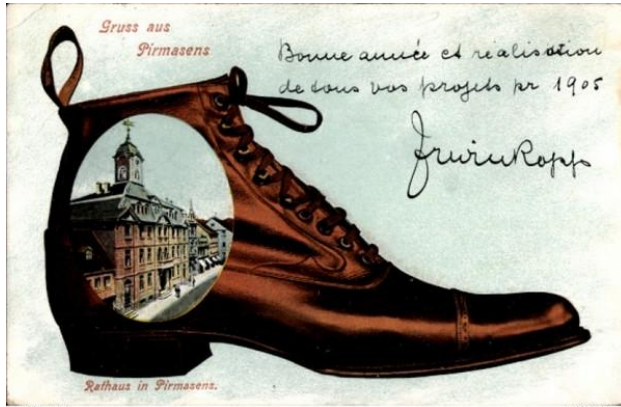 Gruss aus
Pirmasens
Bonne année et réalisation
de tous vos projets pr 1905
Erwin Kopp
Rathaus in Pirmasens.